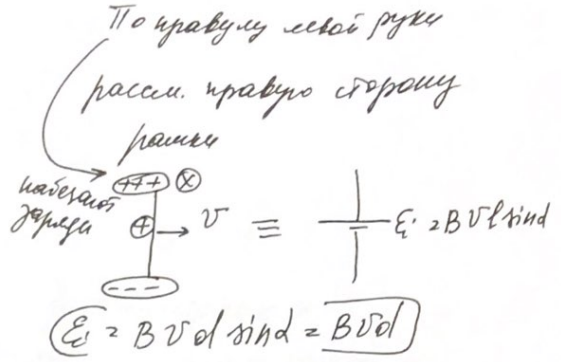 По правилу левой руки
рассм. правую сторону
рамки
набегают
заряды
+++ ⊗
⊕ → v ≡ ℰi = Bvl sinα
- - -
ℰi = Bvd sinα = Bvd